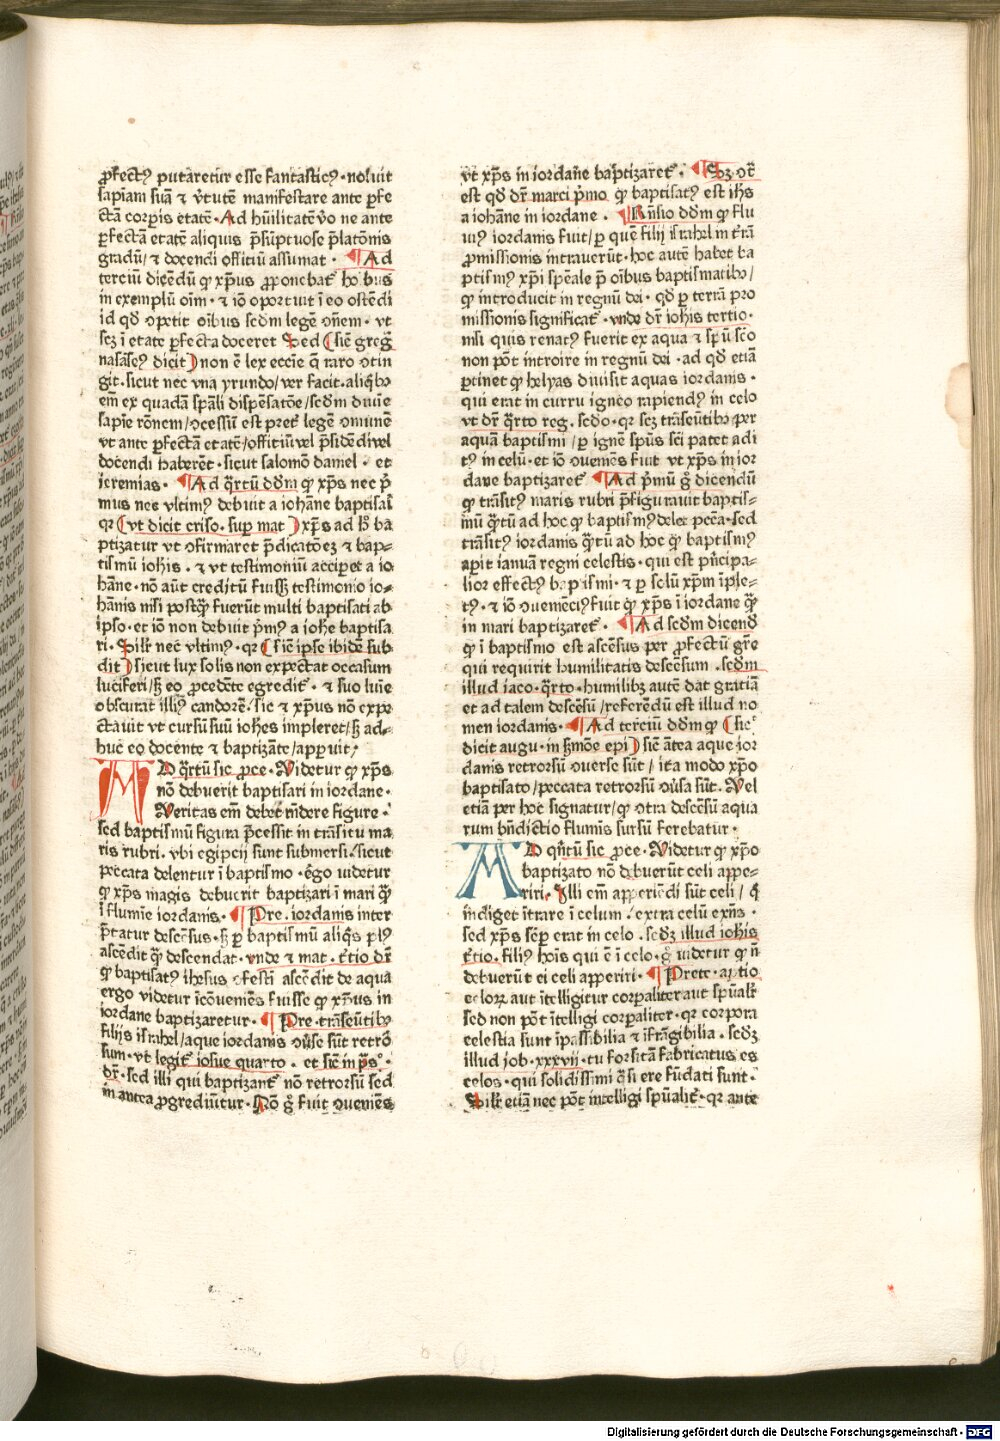 ꝓfectꝰ putaretur esse fantasticꝰ · noluit
sapiam suã ⁊ v̓tutẽ manifestare ante ꝑfe
ctã corpis etatẽ · Ad hũilitatẽ v̓o ne ante
ꝑfectã etatẽ aliquis p̃sũptuose p̃latõnis
gradũ / ⁊ docendi offitiũ assumat · ¶ Ad
terciũ dicẽdũ ꝙ xp̃us ꝓponebat᷑ hoĩbus
in exemplũ oĩm · ⁊ iõ oportuit ĩ eo ostẽdi
id qd̃ ꝯpetit oĩbus scd̃m legẽ ꝯm̃em · vt
scꝫ ĩ etate ꝑfecta doceret Sed ( sic̃ greg̃
nasãseꝰ dicit ) non ẽ lex eccĩe ꝙ raro ꝯtin
git · sicut nec vna yrundo / ver facit · aliq̃bꝰ
em̃ ex quadã sp̃ali dispẽsatõe / scd̃m diuĩe
sapĩe rõnem / ꝯcessũ est pret᷑ legẽ ꝯmunẽ
vt ante ꝑfectã etatẽ / offitiũ vel p̃sidẽdi vel
docendi haberẽt · sicut salomõ daniel · et
ieremias · ¶ Ad q̃rtũ dd̃m ꝙ xp̃s nec p̃
mus nec vltimꝰ debuit a iohãne baptisaĩ
qꝛ ( vt dicit criso · suꝑ mat᷑ ) xp̃s ad hꝰ ba
ptizatur vt ꝯfirmaret p̃dicatõeꝫ ⁊ bap⸗
tismũ iohis · ⁊ vt testimoniũ acciꝑet a io
hãne · nõ aũt creditũ fuissꝫ testimonio io⸗
hãnis nisi postꝙ̃ fuerũt multi baptisati ab
ipso · et iõ non debuit p̃mꝰ a iohẽ baptisa
ri · Silr̃ nec vltimꝰ · qꝛ ( sic̃ ipse ibidẽ sub
dit ) sicut lux solis non expectat occasum
luciferi / sꝫ eo ꝓcedẽte egredit᷑ · ⁊ suo luĩe
obscurat illiꝰ candorẽ · sic ⁊ xp̃us nõ expe
ctauit vt cursũ suũ iohẽs impleret / sꝫ ad⸗
huc eo docente ⁊ baptizãte / apꝑuit /
AD q̃rtũ sic ꝓce · Videtur ꝙ xp̃s
nõ debuerit baptisari in iordane ·
Veritas em̃ debet r̃ndere figure ·
sed baptismũ figura p̃cessit in trãsitu ma
ris rubri · vbi egipcij sunt submersi · sicut
peccata delentur ĩ baptismo · ẽgo uidetur
ꝙ xp̃s magis debuerit baptizari ĩ mari ꝙ̃
ĩ flumĩe iordanis · ¶ Pre · iordanis inter
p̃tatur descẽsus · sꝫ ꝑ baptismũ aliq̃s plꝰ
ascẽdit ꝙ̃ descendat · vnde ⁊ mat · t̃tio dr̃
ꝙ baptisatꝰ ihesus ꝯfestĩ ascẽdit de aqua
ergo videtur ĩcõueniẽs fuisse ꝙ xp̃us in
iordane baptizaretur · ¶ Pre · trãseũtibꝰ
filijs israhel / aque iordanis ꝯũse sũt retrõ
sum · vt legit᷑ iosue quarto · et sic̃ in p̃s ·
dr̃ · sed illi qui baptizant᷑ nõ retrorsũ sed
in antea ꝓgrediũtur · Nõ g̃ fuit ꝯueniẽs
vt xp̃s in iordane baptizaret᷑ · ¶ Sꝫ ꝯt̃
est qd̃ dr̃ marci p̃mo ꝙ baptisatꝰ est ihs̃
a iohãne in iordane · ¶ Rñsio dd̃m ꝙ flu
uiꝰ iordanis fuit / ꝑ quẽ filij israhel in t̃rã
ꝓmissionis intrauerũt · hoc autẽ habet ba
ptismꝰ xp̃i sp̃eale p̃ oĩbus baptismatibꝰ /
ꝙ introducit in regnũ dei · qd̃ ꝑ terrã pro
missionis significat᷑ · vnde dr̃ iohis tertio ·
nisi quis renatꝰ fuerit ex aqua ⁊ sp̃u sc̃o
non põt introire in regnũ dei · ad qd̃ etiã
ꝑtinet ꝙ helyas diuisit aquas iordanis ·
qui erat in curru igneo rapiendꝰ in celo
vt dr̃ q̃rto reg · scd̃o · qꝛ scꝫ trãseũtibꝰ per
aquã baptismi / ꝑ ignẽ sp̃us sc̃i patet adi
tꝰ in celũ · et iõ ꝯueniẽs fuit vt xp̃s in ior
dane baptizaret᷑ ¶ Ad p̃mũ g̃ dicendũ
ꝙ trãsitꝰ maris rubri p̃figurauit baptis⸗
mũ q̃tũ ad hoc ꝙ baptismꝰ delet pcc̃a · sed
trãsitꝰ iordanis q̃tũ ad hoc ꝙ baptismꝰ
aꝑit ianuã regni celestis · qui est p̃ncipa⸗
lior effectꝰ baptismi · ⁊ ꝑ solũ xp̃m ĩple⸗
tꝰ · ⁊ iõ ꝯueniẽciꝰ fuit ꝙ xp̃s ĩ iordane ꝙ̃
in mari baptizaret᷑ · ¶ Ad scd̃m dicend̃
ꝙ ĩ baptismo est ascẽsus per ꝓfectũ gr̃e
qui requirit humilitatis descẽsum · scd̃m
illud iaco · q̃rto · humilibꝫ autẽ dat gratiã
et ad talem descẽsũ / referẽdũ est illud no
men iordanis · ¶ Ad terciũ dd̃m ꝙ ( sic̃
dicit augu · in sꝫmõe epi ) sic̃ ãtea aque ior
danis retrorsũ ꝯuerse sũt / ita modo xp̃o
baptisato / peccata retrorsũ ꝯũsa sũt · Vel
etiã per hoc signatur / ꝙ ꝯtra descẽsũ aqua
rum bñdictio flumis sursũ ferebatur ·
AD qñtũ sic ꝓce · Videtur ꝙ xp̃o
baptizato nõ debuerũt celi appe⸗
riri · Illi em̃ apperiẽdi sũt celi / q̃
ĩndiget ĩtrare ĩ celum · extra celũ exñs ·
sed xp̃s sẽꝑ erat in celo · scd̃ꝫ illud iohis
t̃tio · filiꝰ hoĩs qui ẽ ĩ celo · g̃ uidetur ꝙ ñ
debuerũt ei celi apperiri · ¶ Prete · aꝑtio
celoꝝ aut ĩtelligitur corꝑaliter aut sp̃ualr̃
sed non põt ĩtelligi corꝑaliter · qꝛ corpora
celestia sunt ĩpassibilia ⁊ ĩfrãgibilia · scd̃ꝫ
illud iob · xxxvij · tu forsitã fabricatus es
celos · qui solidissimi q̃si ere fũdati sunt ·
Silr̃ etiã nec põt intelligi sp̃ualit᷑ · qꝛ ante
Digitalisierung gefördert durch die Deutsche Forschungsgemeinschaft - DFG